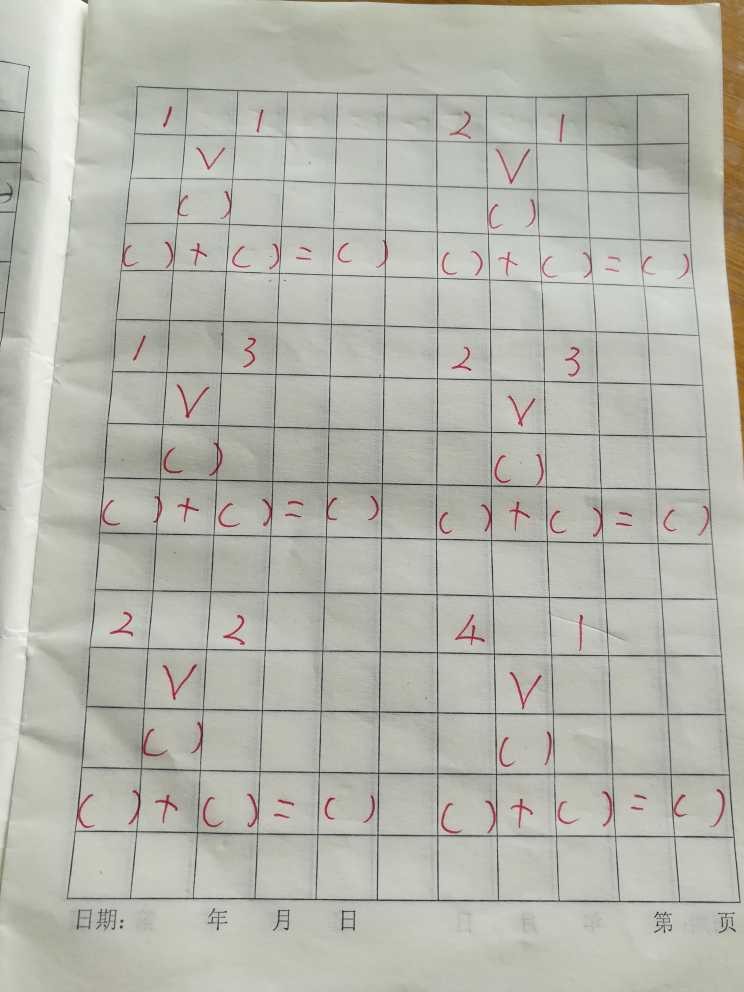 1 1 2 1
V V
( ) ( )
( ) + ( ) = ( ) ( ) + ( ) = ( )
1 3 2 3
V V
( ) ( )
( ) + ( ) = ( ) ( ) + ( ) = ( )
2 2 4 1
V V
( ) ( )
( ) + ( ) = ( ) ( ) + ( ) = ( )
日期: 年 月 日 第 页